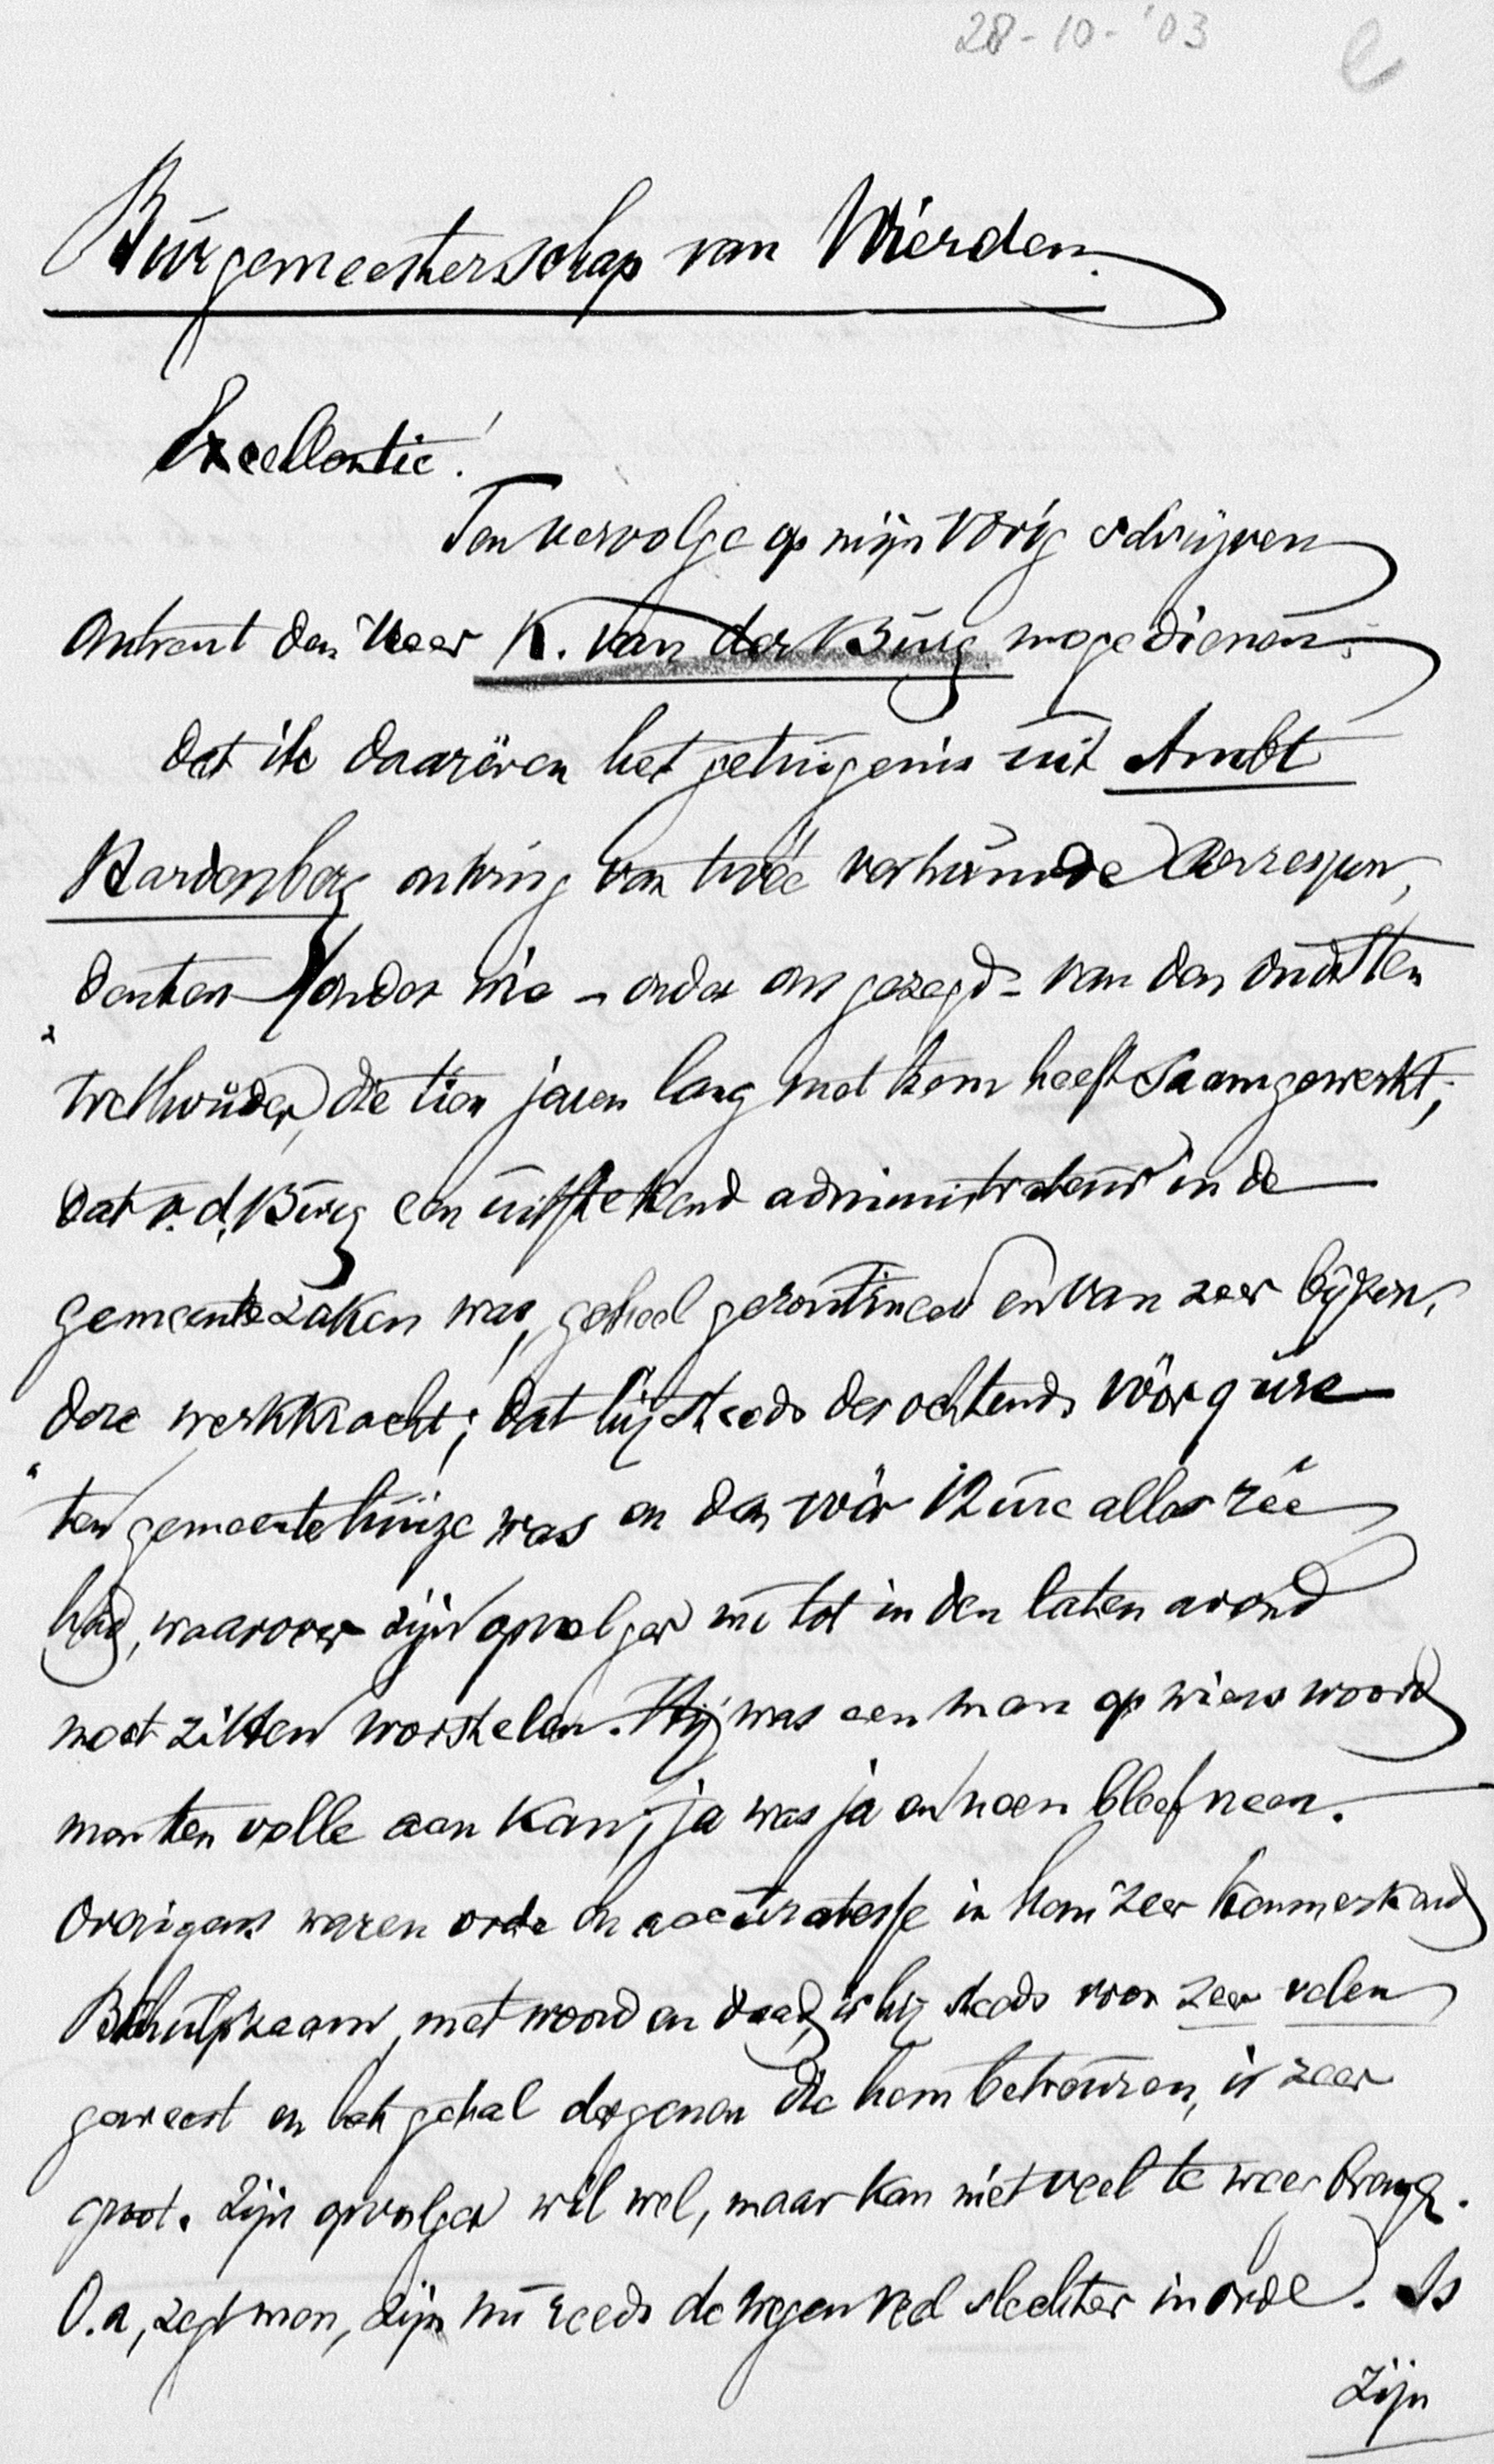 28-10-'03 e
Burgemeesterschap van Wierden.
Excellentie!
Ten vervolge op mijn vorig schrijven
omtrent den Heer K. van der Burg moge dienen:
dat ik daareven het getuigenis uit Ambt
Hardenberg ontving van twée vertrouwde correspon„
denten (onder wie – onder ons gezegd – van den oudsten
wethouder, die tien jaren lang met hem heeft saamgewerkt;
dat v. d. Burg een uitstekend administrateur in de
gemeentezaken was, geheel geroutineerd en van zeer bijzon„
dere werkkracht; dat hij steeds des ochtends vóór 9 ure
ten gemeentehuize was en dan vóór 12 ure alles rée
had, waarover zijn opvolger nu tot in den laten avond
moet zitten worstelen. Hij was een man op wiens woord
men ten volle aan kan; ja was ja en neen bleef neen.
Overigens waren orde en accuratesse in hem zeer kenmerkend
Behulpzaam, met woord en daad, is hij steeds voor zeer velen
geweest en het getal dergenen die hem betreuren, is zeer
groot. Zijn opvolger wil wel, maar kan niet veel te weer brengen.
O.a., zegt men, zijn nu reeds de wegen veel slechter in orde. Is
zijn